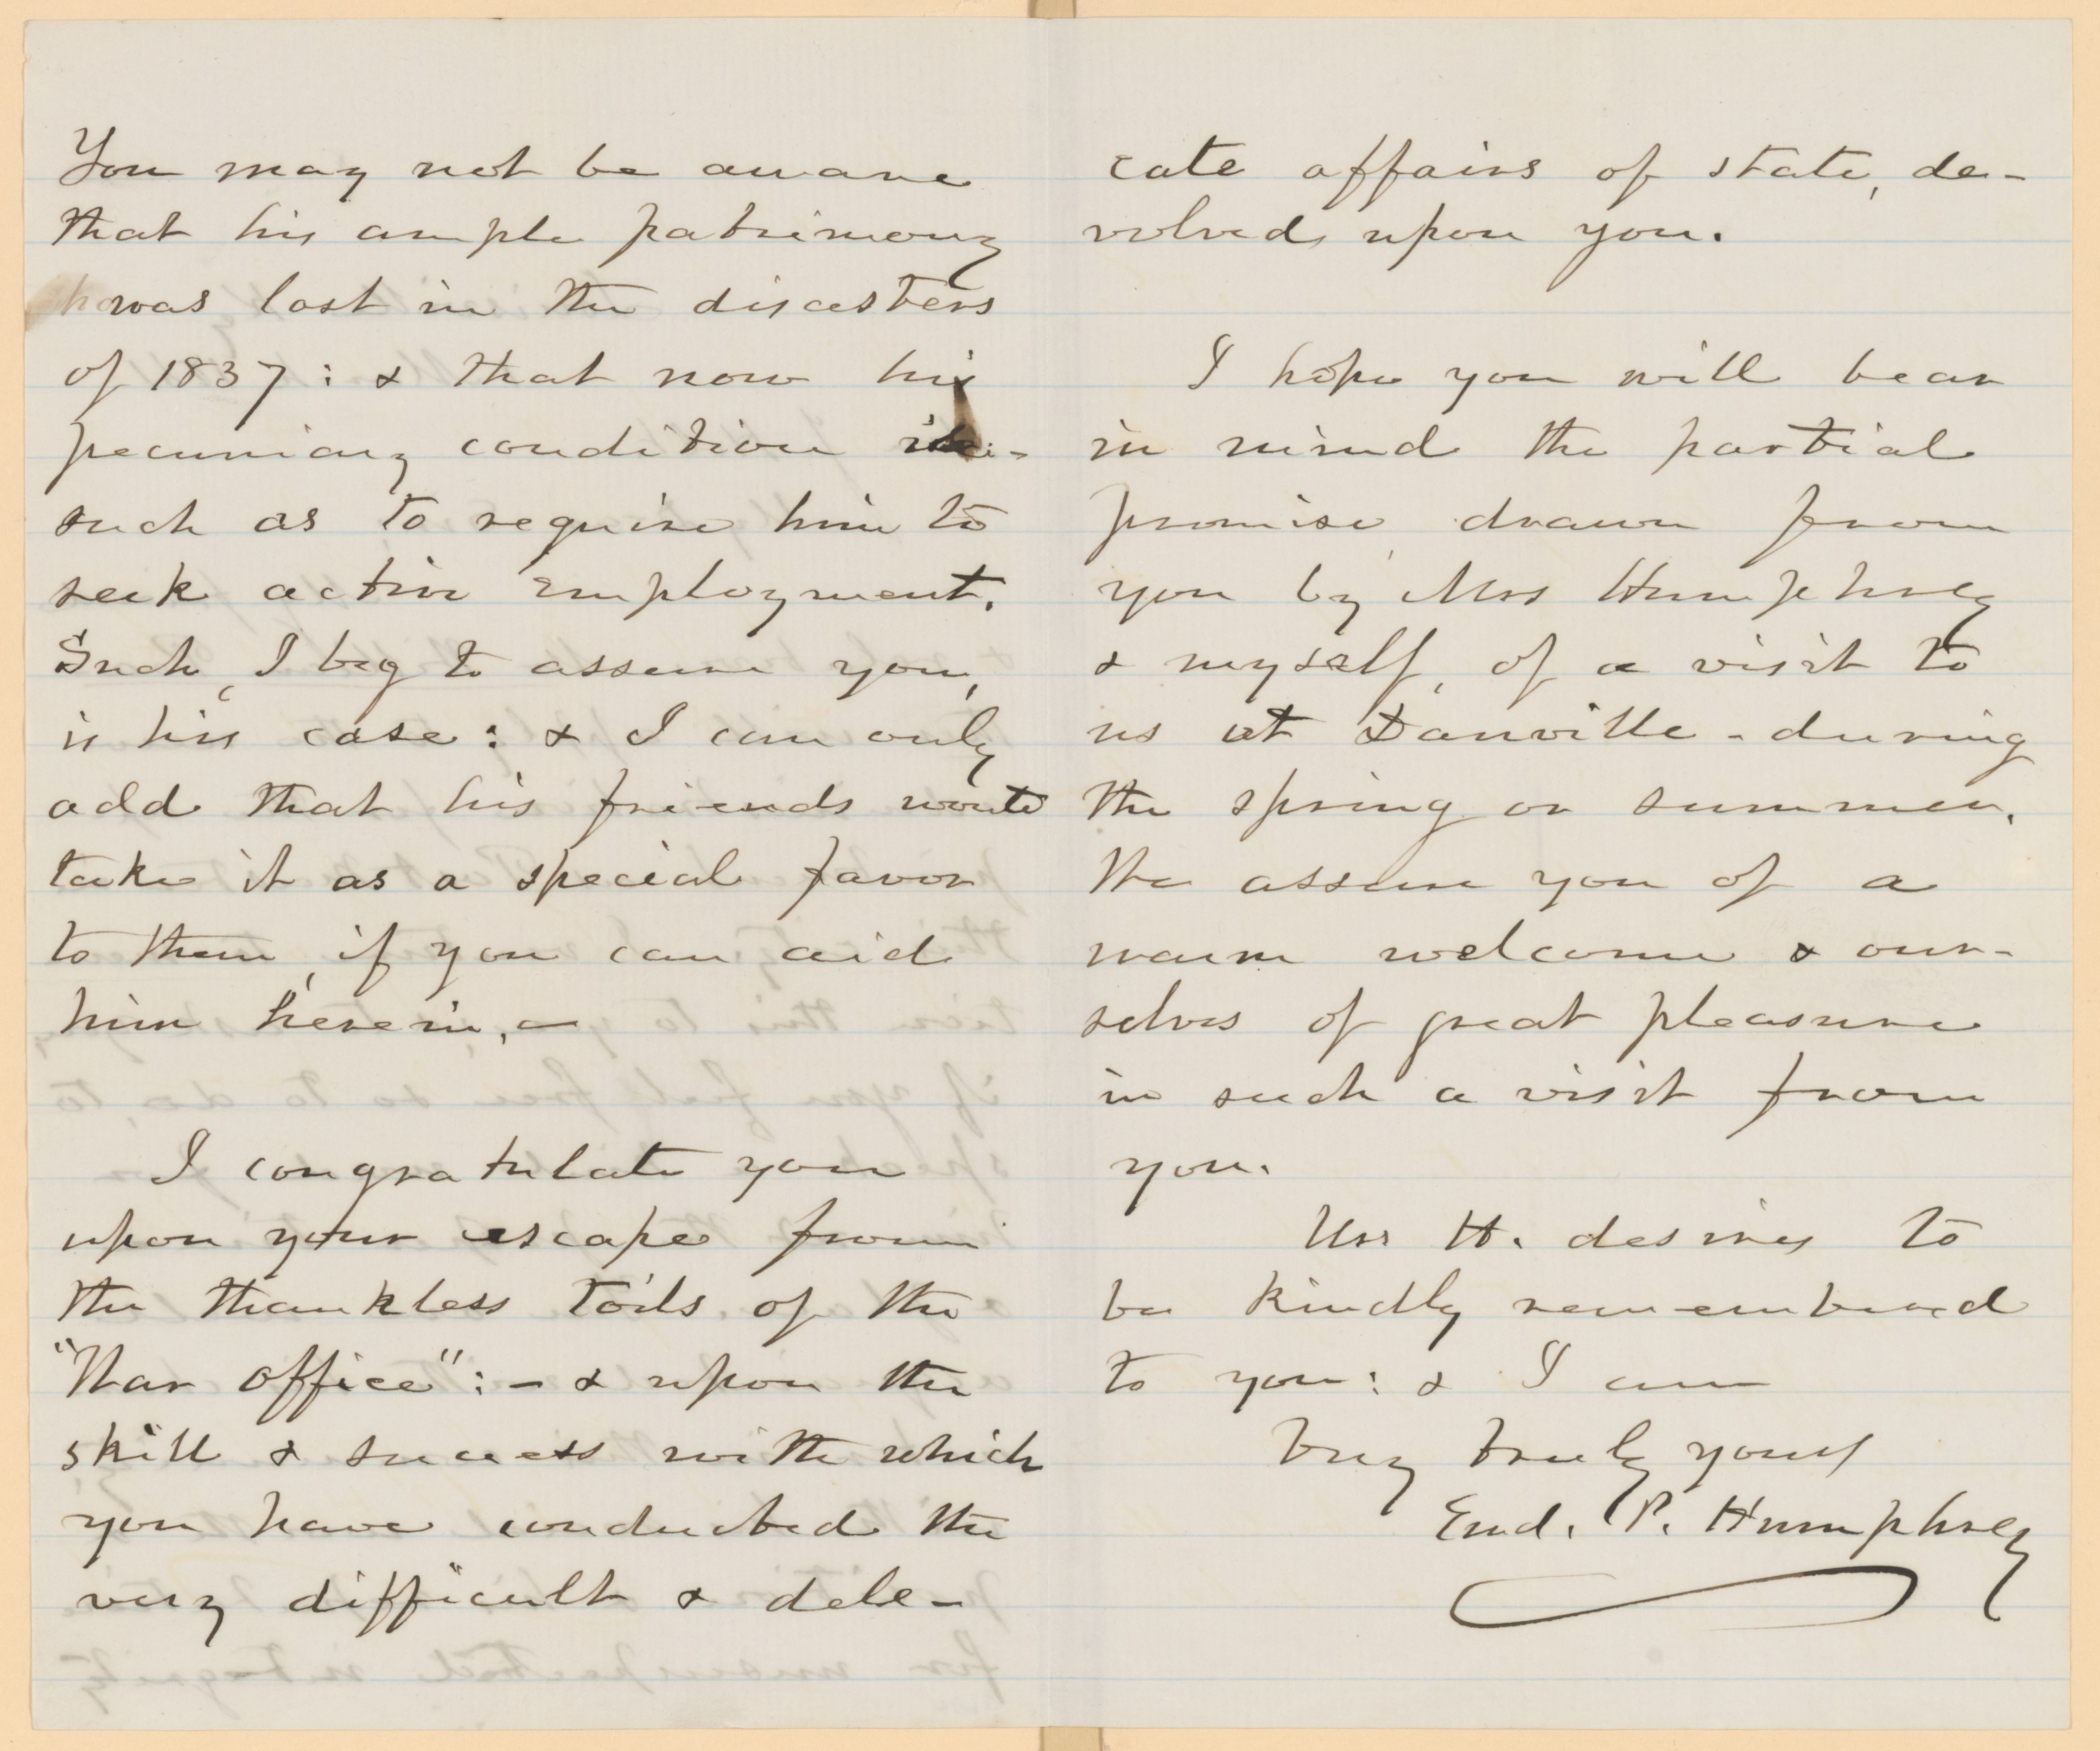 You may not be aware
that his ample patrimony
was lost in the disasters
of 1837: & that now his
pecuniary condition is
such as to require him to
seek active employment.
Such, I beg to assure you,
is his case: & I can only
add that his friends would
take it as a special favor
to them, if you can aid
him herein. —
I congratulate you
upon your escape from
the thankless toils of the
"War office": — & upon the
skill & success with which
you have conducted the
very difficult & deli-
cate affairs of state, de-
volved upon you.
I hope you will bear
in mind the partial
promise drawn from
you by Mrs Humphrey
& myself, of a visit to
us at Danville - during
the spring or summer.
We assure you of a
warm welcome & our-
selves of great pleasure
in such a visit from
you.
Mrs H. desires to
be kindly remembered
to you: & I am
Very truly yours
Edwd. P. Humphrey